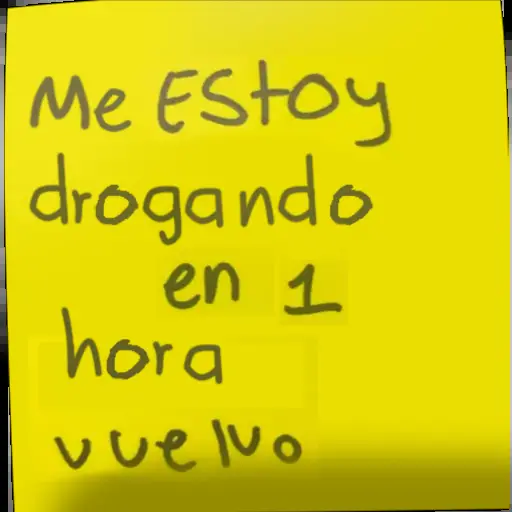 Me EStoy
drogando
en 1
hora
vuelvo